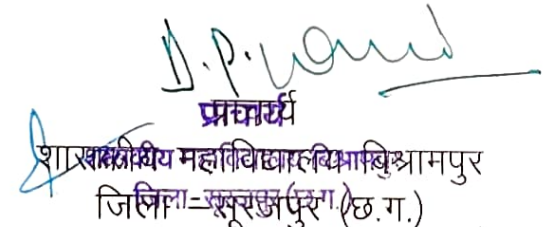 D.P.
प्राचार्य
शासकीय महाविद्यालय बिश्रामपुर
जिला - सूरजपुर (छ.ग.)